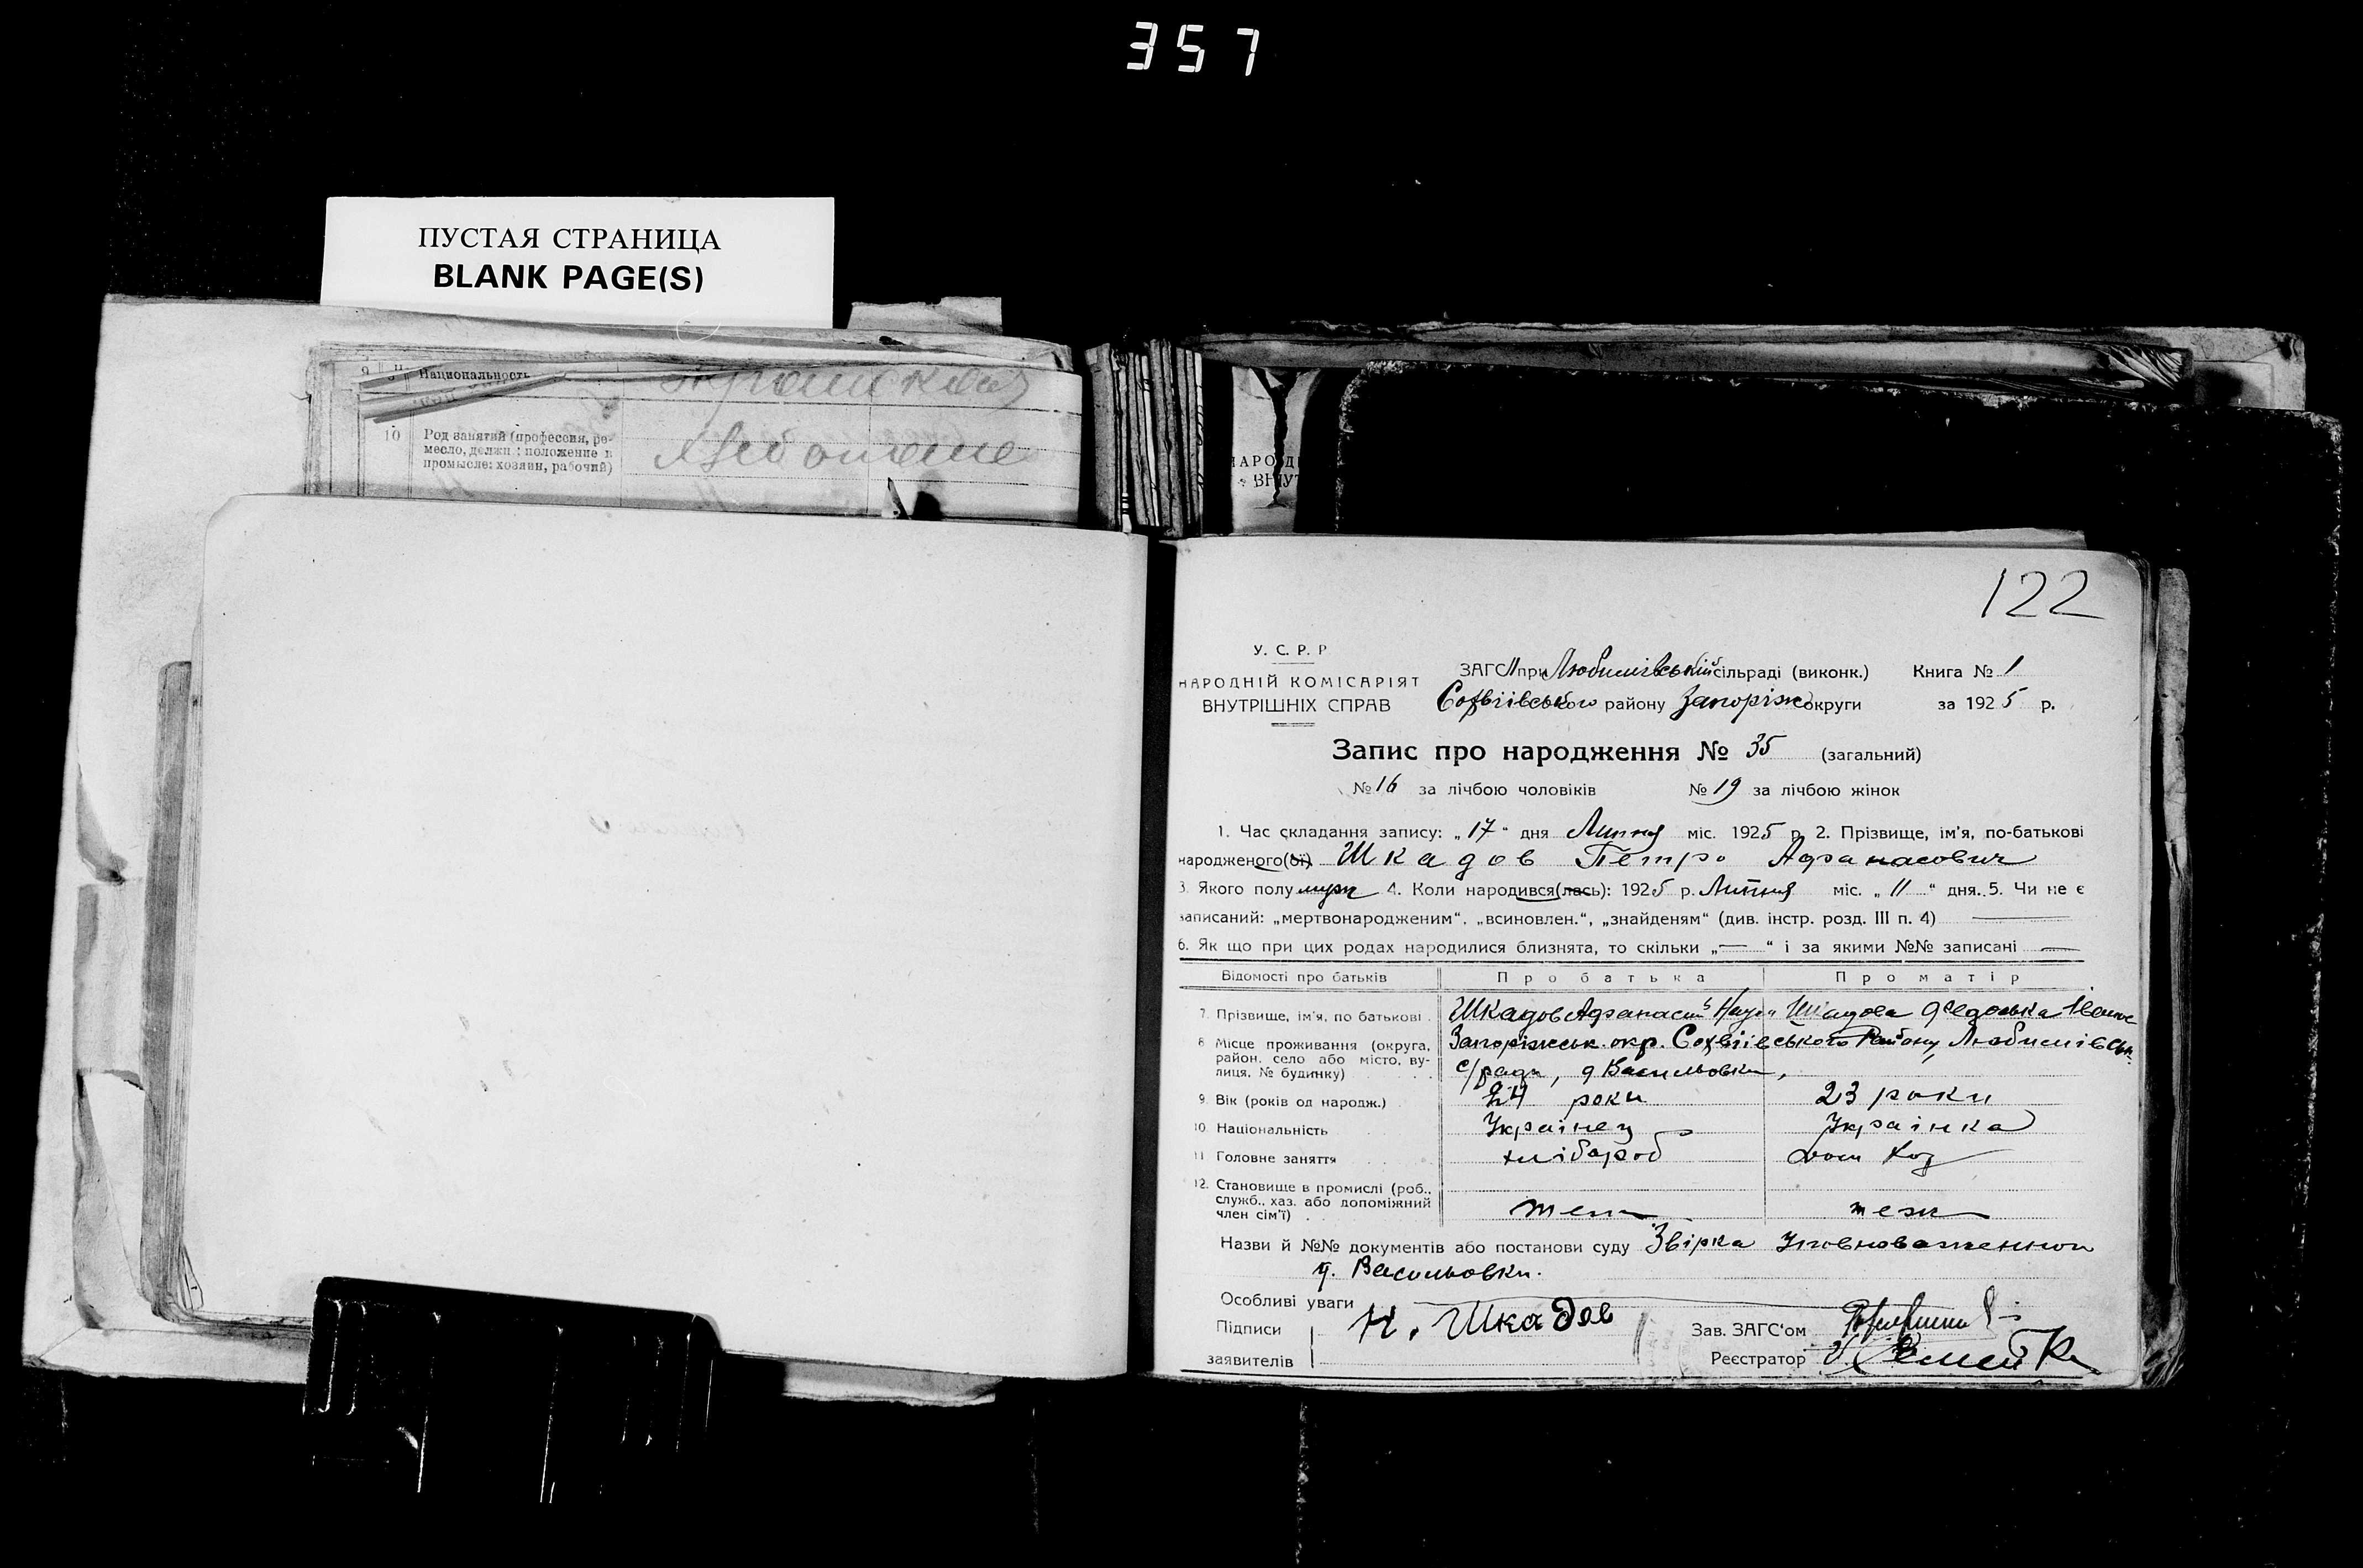 357
ПУСТАЯ СТРАНИЦА
BLANK PAGE(S)
9 Национальность
10 Род занятий (профессия, ре-
месло, должн.; положение в
промысле: хозяин, рабочий)
122
У. С. Р. Р
НАРОДНІЙ КОМІСАРІЯТ
ВНУТРІШНІХ СПРАВ
ЗАГС при Любимівській сільраді (виконк.) Книга № 1
Софіївського району Запоріж округи за 1925 р.
Запис про народження № 35 (загальний)
№ 16 за лічбою чоловіків № 19 за лічбою жінок
1. Час складання запису: „17" дня Липня міс. 1925 р. 2. Прізвище, ім'я, по-батькові
народженого(ої) Шкадов Петро Афанасович
3. Якого полу муж 4. Коли народився(лась): 1925 р. Липня міс. „11" дня. 5. Чи не є
записаний: „мертвонародженим", „всиновлен.", „знайденям" (див. інстр. розд. III п. 4) —
6. Як що при цих родах народилися близнята, то скільки „—" і за якими №№ записані —
Відомості про батьків Про батька Про матір
7. Прізвище, ім'я, по батькові Шкадов Афанасий Шкадова
8. Місце проживання (округа,
район, село або місто, ву-
лиця, № будинку)
Запоріжськ. окр. Софіївського Району, Любимівськ.
с/ради, Васильовки,
9. Вік (років од народж.) 24 роки 23 роки
10. Національність Українец Українка
11. Головне заняття хлібороб дом хоз
12. Становище в промислі (роб.,
служб., хаз. або допоміжний
член сім'ї)
Назви й №№ документів або постанови суду Звірка Уповноваженной
Васильовки.
Особливі уваги
Підписи Шкадов Зав. ЗАГС'ом
заявителів Реєстратор